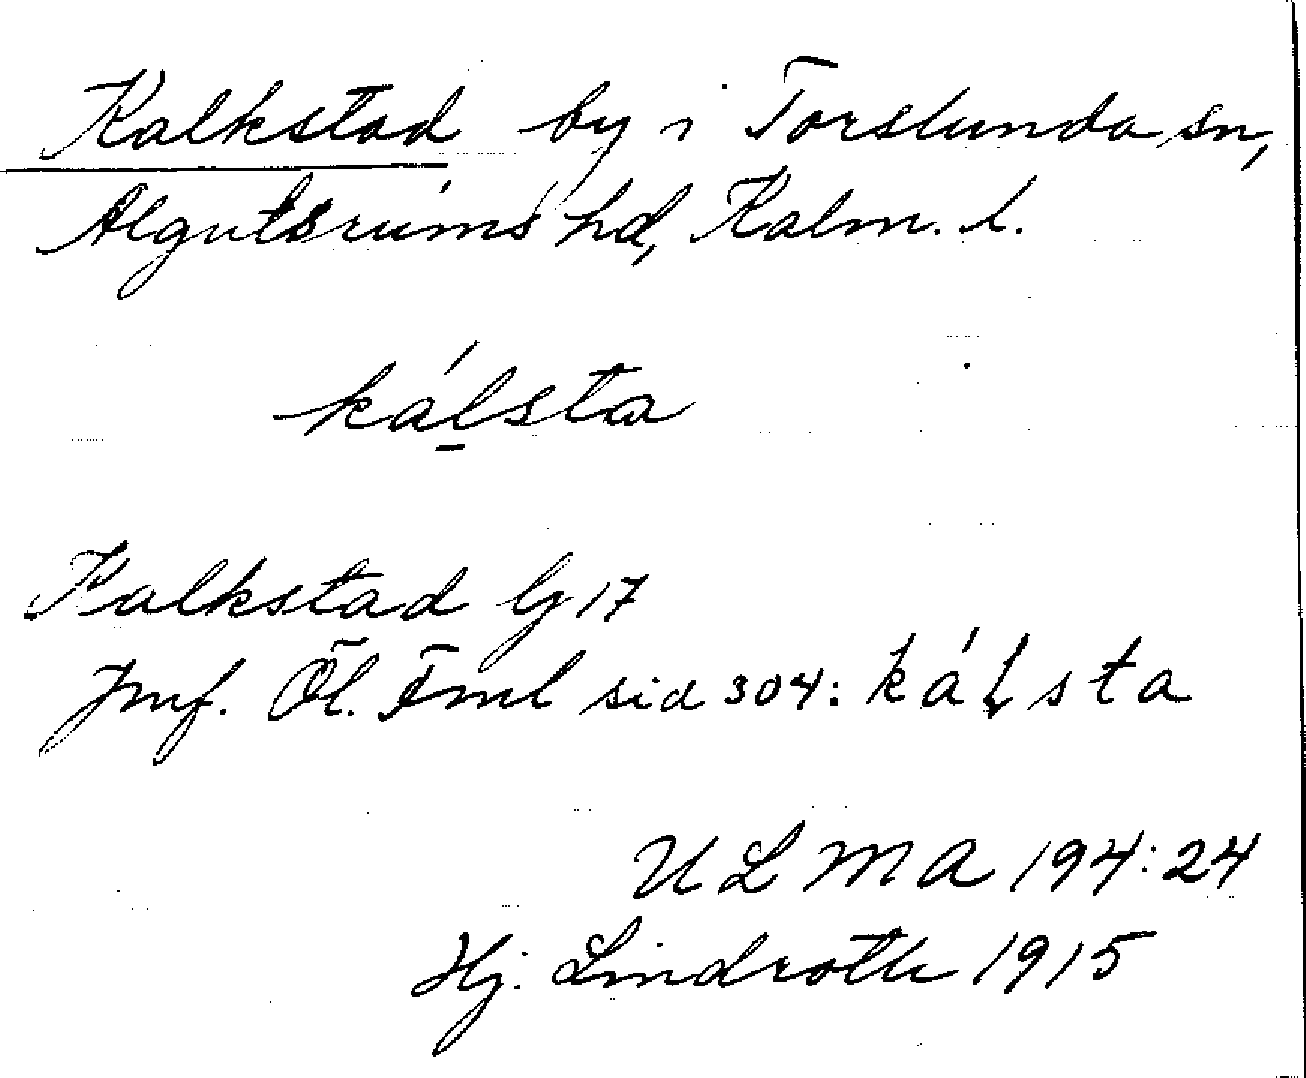 Kalkstad by i Torslunda sn,
Algutsrums hd, Kalm. l.
kálsta
Kalkstad G 17
Jmf. Öl. Fml sid 304: kálsta
ULMA 194:24
Hj. Lindroth 1915